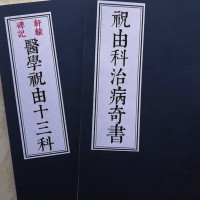 軒轅碑記
醫學祝由十三科
祝由科治病奇書